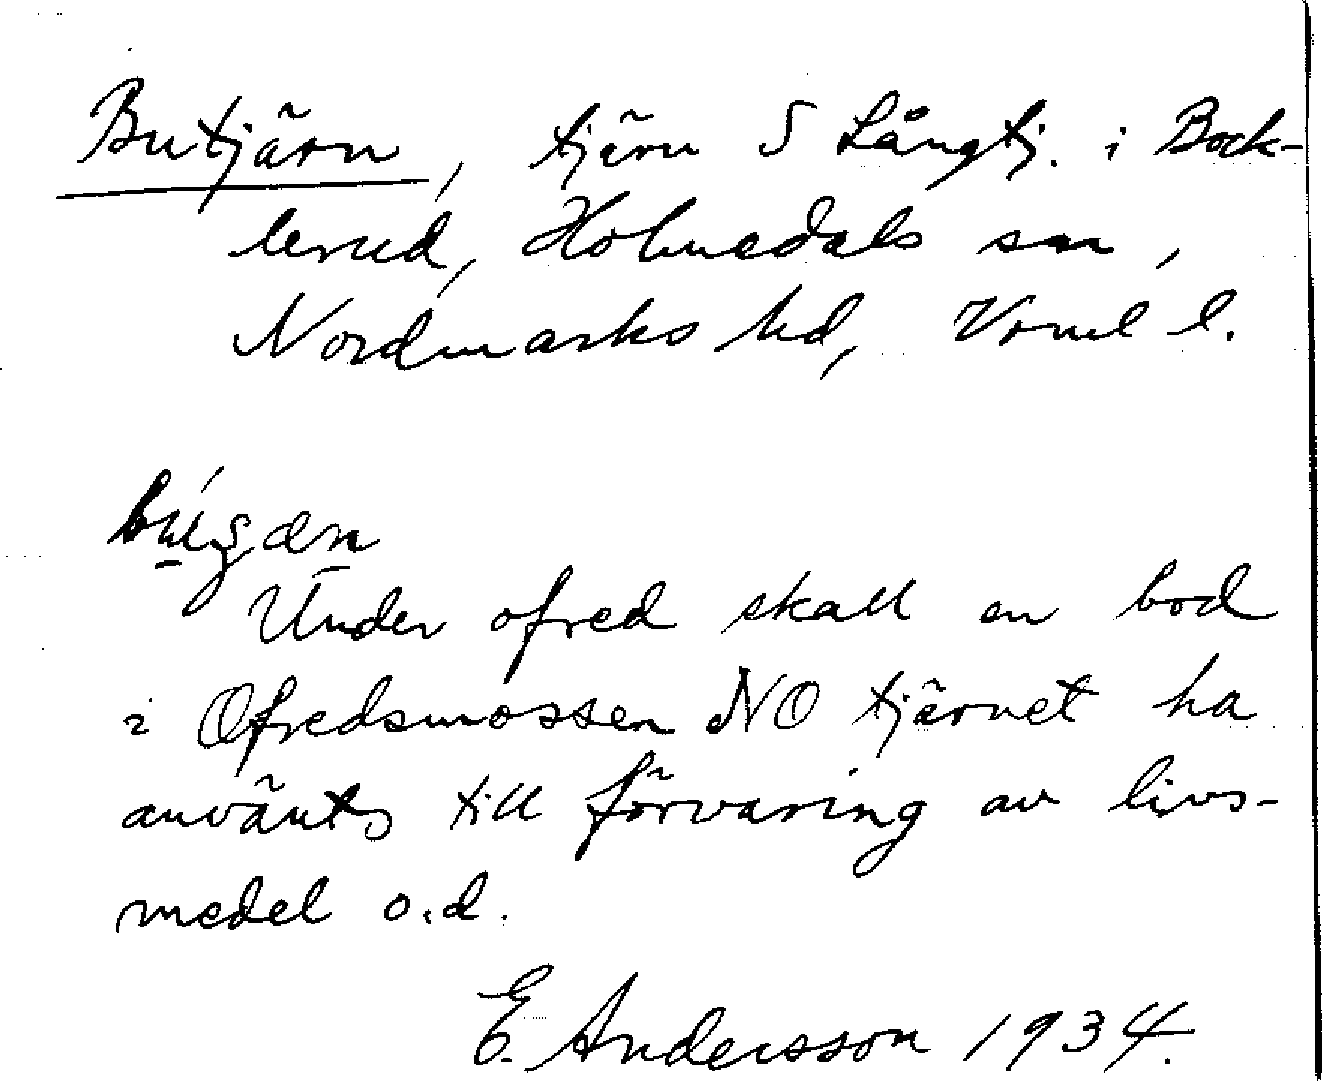 Butjärn, tjärn S Långtj. i Bock-
lerud, Holmedals sn,
Nordmarks hd, Vrml l.
Under ofred skall en bod
i Ofredsmossen NO tjärnet ha
använts till förvaring av livs-
medel o.d.
E. Andersson 1934.